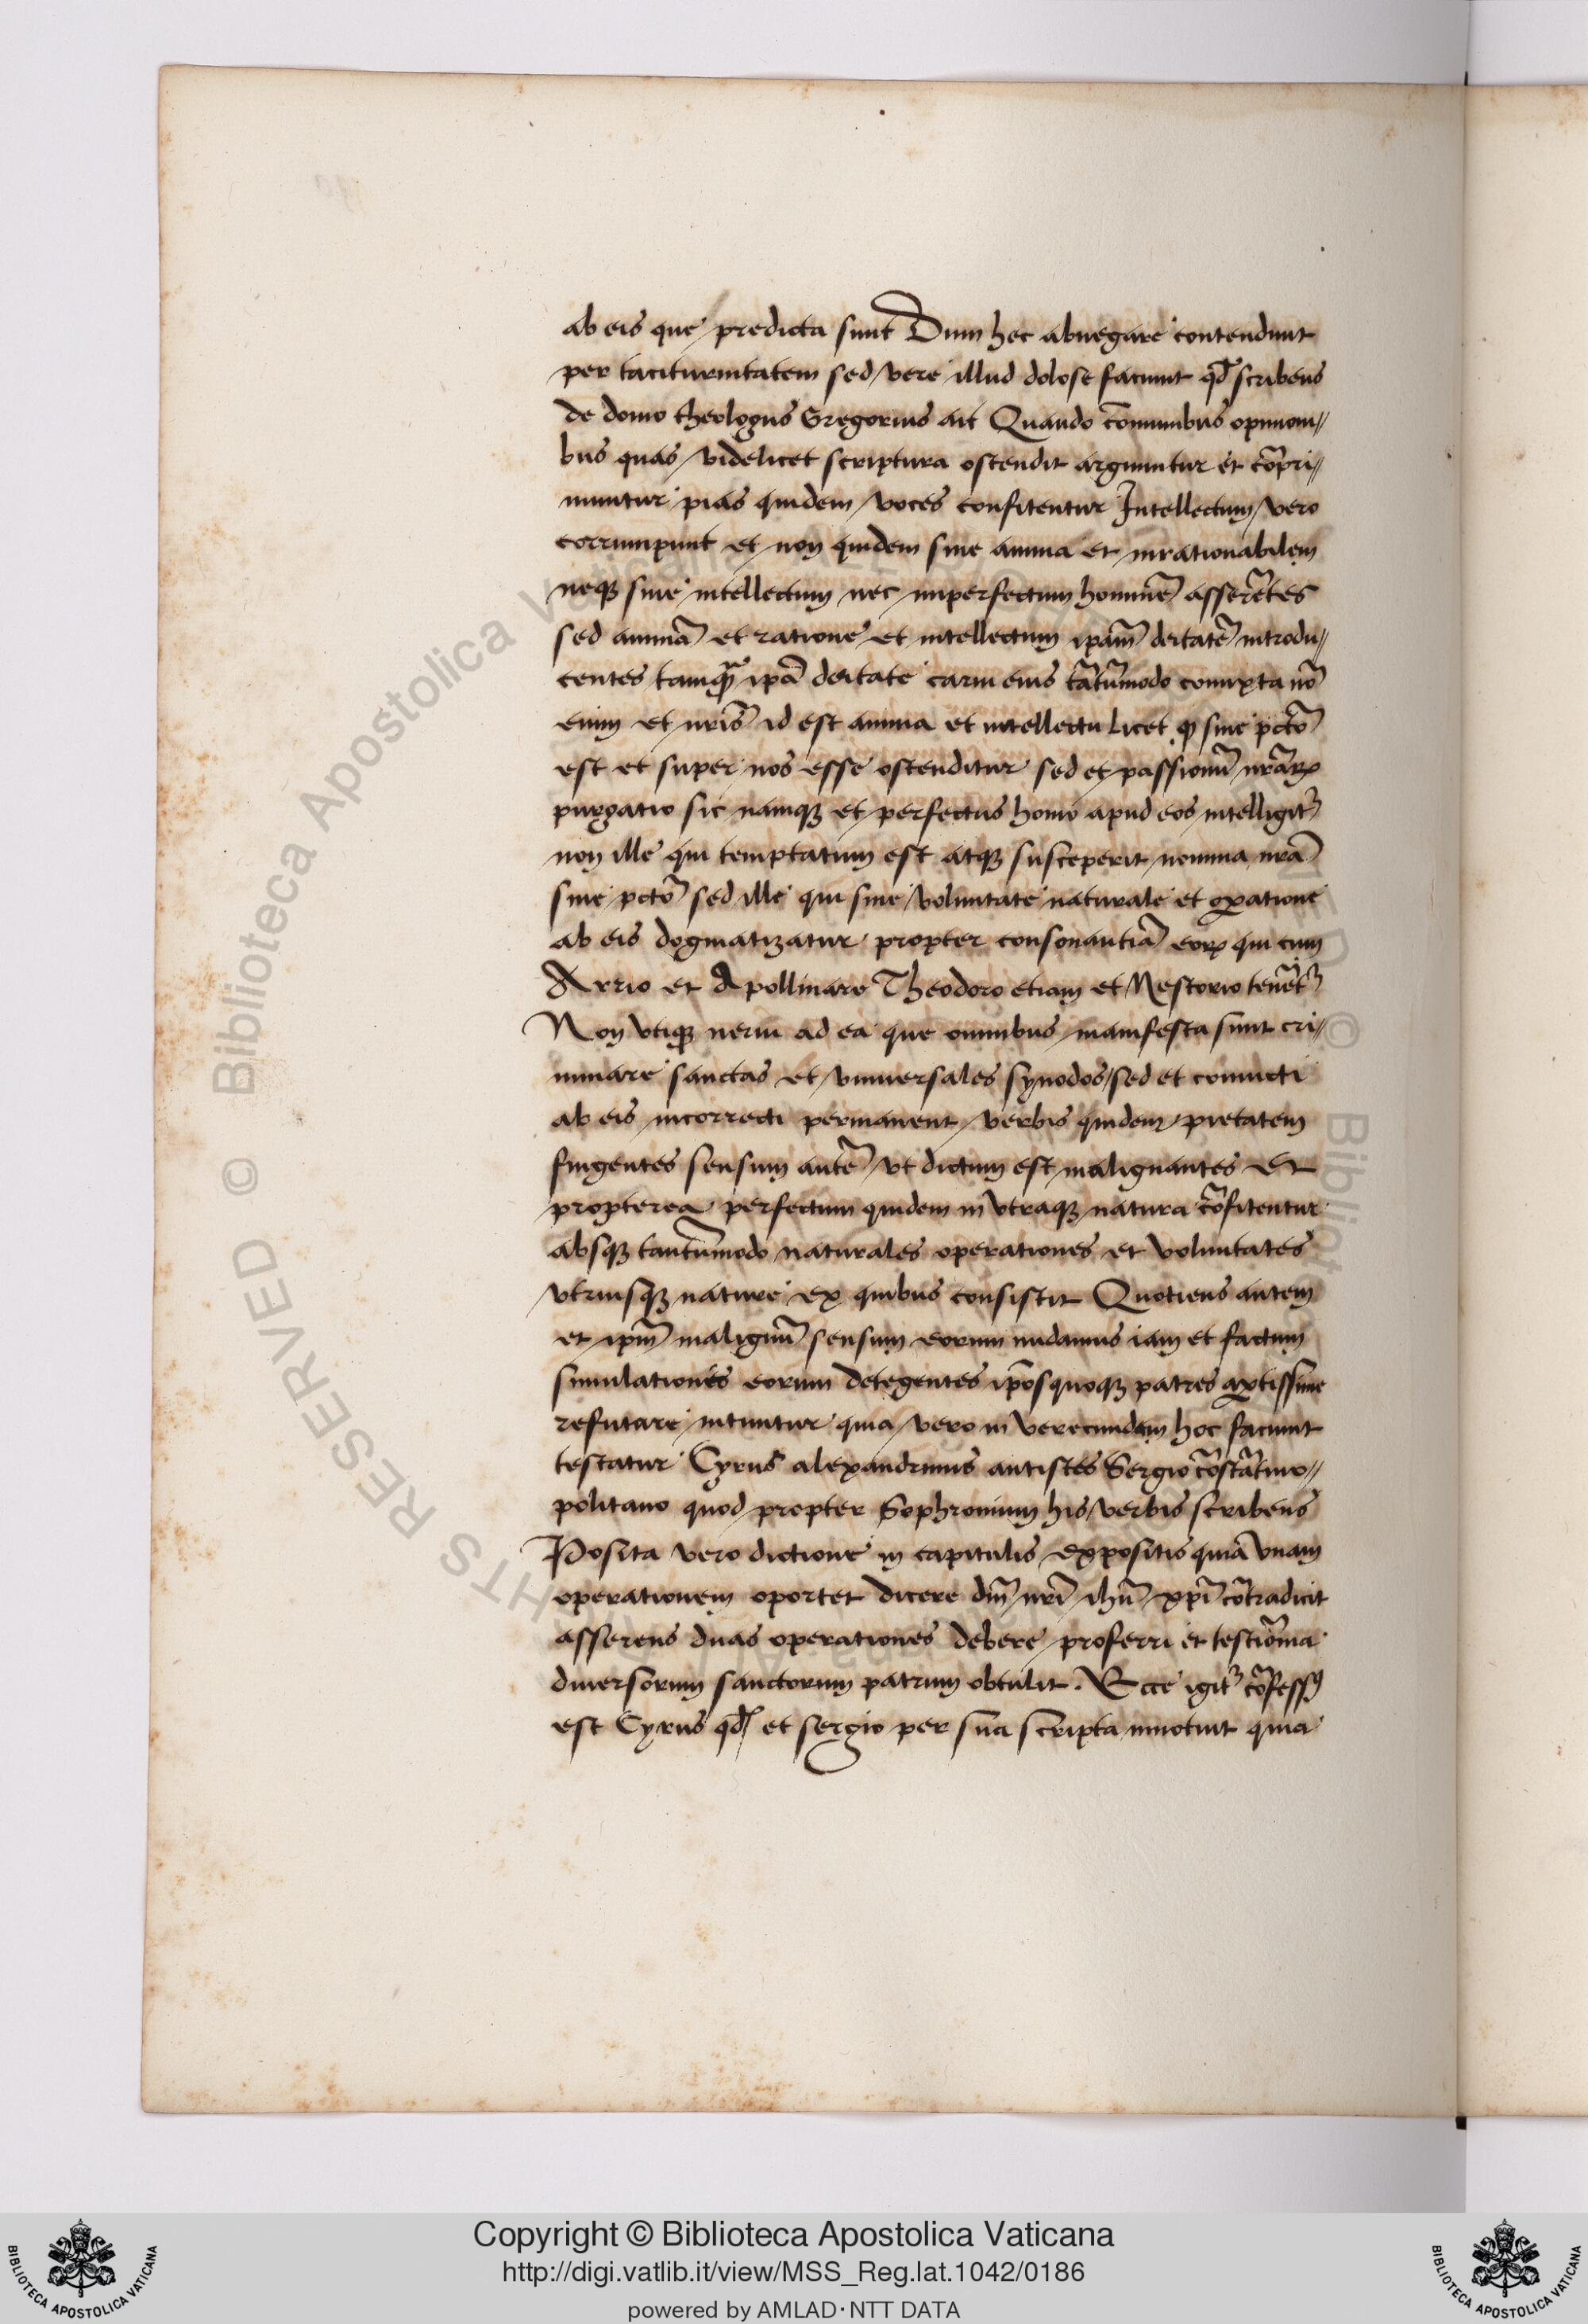 ab eis que predicta sunt Dum hec abnegare contendunt
per taciturnitatem sed vere illud dolose faciunt qd̃ scribens
de domo theologus Gregorius ait Quando cõmunibus opinioni〃
bus quas videlicet scriptura ostendit arguuntur et cõpri〃
muntur pias quidem voces confitentur Intellectum vero
corrumpunt et non quidem sine anima et inrationabilem
neqꝫ sine intellectum nec imperfectum hominẽ asserẽtes
sed animã et ratione et intellectum ipãm deitatẽ introdu〃
centes tamqꝫ̃ ipã deitate carni eius tãtũmodo conmixta nõ
enim et nr̃is id est anima et intellectu licet qꝫ sine pctõ
est et super nos esse ostenditur sed et passionũ nr̃aꝝ
purgatio sic namqꝫ et perfectus homo apud eos intelligit᷑
non ille qui temptatum est atqꝫ susceperit nomina nr̃ã
sine pctõ sed ille qui sine voluntate naturale et oꝑatione
ab eis dogmatizatur propter consonantiã eoꝝ qui cum
Arrio et Apollinare Theodoro etiam et Nestorio tenẽt᷑
Non vtiqꝫ nerui ad ea que omnibus manifesta sunt cri〃
minare sanctas et vniuersales synodos sed et conuicti
ab eis incorrecti permanent verbis quidem pietatem
fingentes sensum autẽ vt dictum est malignantes Et
propterea perfectum quidem in vtraqꝫ natura cõfitentur
absqꝫ tantũmodo naturales operationes et voluntates
vtriusqꝫ nature ex quibus consistit Quotiens autem
et ipm̃ malignũ sensum eorum nudamus iam et factum
simulationes eorum detegentes ip̃os quoqꝫ patres aꝑtissime
refutare nituntur quia vero in verecundam hoc faciunt
testatur Cyrus alexandrinus antistes Sergio cõstãtino〃
politano quod propter Sophronium his verbis scribens
Posita vero dictione in capitulis expositis quia vnam
operationem oportet dicere dm̃ nr̃i ihũ xp̃i cõtradicit
asserens duas operationes debere proferri et testiõnia
diuersorum sanctorum patrum obtulit. Ecce igit᷑ cõfessꝰ
est Cyrus qd̃ et sergio per sua scripta innotuit quia
Copyright © Biblioteca Apostolica Vaticana
http://digi.vatlib.it/view/MSS_Reg.lat.1042/0186
powered by AMLAD·NTT DATA